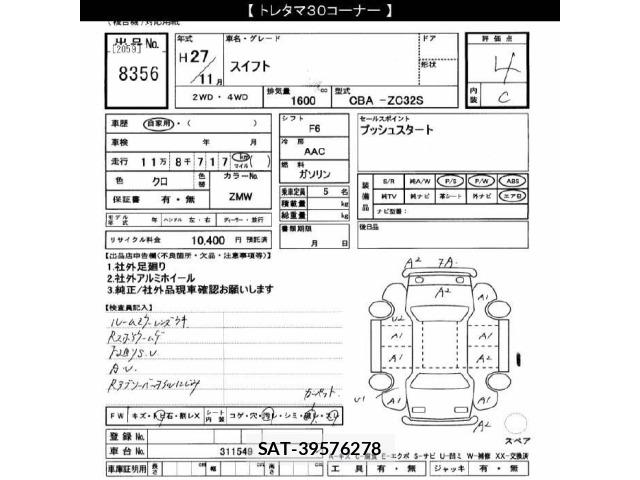 【 トレタマ30コーナー 】
出品No.
[2059]
8356
年式
H27/11月
車名・グレード
スイフト
ドア
形状
評価点
4
内装
C
2WD・4WD
排気量
1600cc
型式
CBA -ZC32S
車歴
自家用・( )
車検
年 月
走行
11万 8千 717 km マイル( )
色
クロ
色替
カラーNo.
ZMW
保証書
有・無
モデル年式
年
ハンドル 左・右
ディーラー・並行
リサイクル料金
10,400 円 預託済
シフト
F6
冷房
AAC
燃料
ガソリン
乗車定員
5 名
積載量
kg
総重量
kg
書類期限
月 日
セールスポイント
プッシュスタート
装備品
S/R
純A/W
P/S
P/W
ABS
純TV
純ナビ
革シート
外ナビ
エアB
ナビ型番:
後日品
【出品店申告欄(不良箇所・欠品・注意事項等)】
1.社外足廻り
2.社外アルミホイール
3.純正/社外品現車確認お願いします
【検査員記入】
A2
A2
A1
A1
A1
A2
A1
A1
A1
U1
スペア
FW
キズ・トビ石・削レX
シート内装
登録No.
車台No.
311549
SAT-39576278
E=エクボ S=サビ U=凹ミ W=補修 XX=交換済
車庫証明用
長さ
幅
高さ
工具
有・無
ジャッキ
有・無